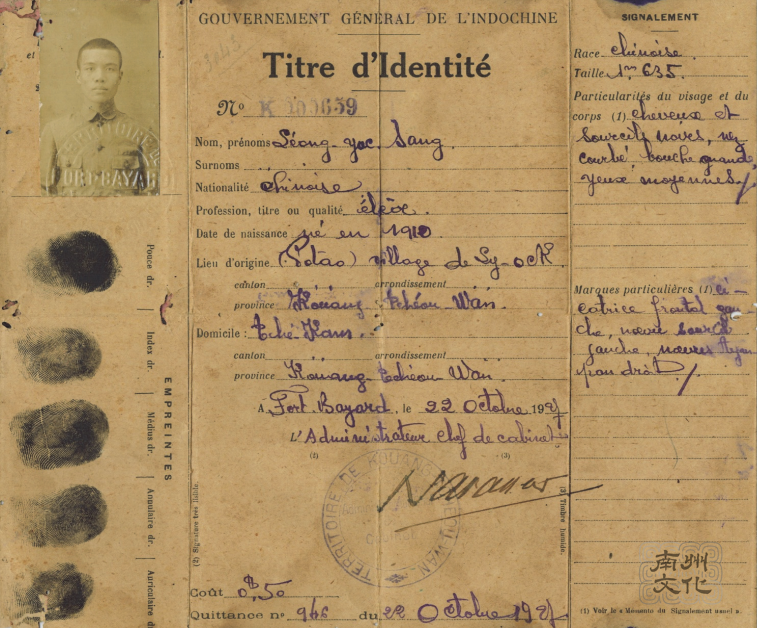 GOUVERNEMENT GÉNÉRAL DE L'INDOCHINE
Titre d'Identité
Nº K 200639
Nom, prénoms Léong-yac Sang
Surnoms
Nationalité chinoise
Profession, titre ou qualité élève.
Date de naissance né en 1910
Lieu d'origine (Potao) village de Sy-ock
canton arrondissement
province Kouang-tchéou Wan.
Domicile : Tché-Kam.
canton arrondissement
province Kouang-tchéou-Wan.
A Fort Bayard, le 22 Octobre 1927
L'Administrateur chef de cabinet
(2) (3)
TERRITOIRE DE KOUANG TCHEOU WAN
(2) Signalement
(3) Timbre humide.
Coût 0$50
Quittance nº 946 du 22 Octobre 1927
et
TERRITOIRE DE
FORT-BAYARD
Pouce dr.
Index dr.
Médius dr.
Annulaire dr.
Auriculaire d
EMPREINTES
SIGNALEMENT
Race chinoise.
Taille 1m 635.
Particularités du visage et du
corps (1) cheveux et
sourcils noirs, nez
courbé, bouche grande,
yeux moyennes
Marques particulières (1) ci-
catrice frontal gau-
che, nævus sourcil
gauche, nævus
droit.
(1) Voir le « Mémento du Signalement usuel ».
南州
文化